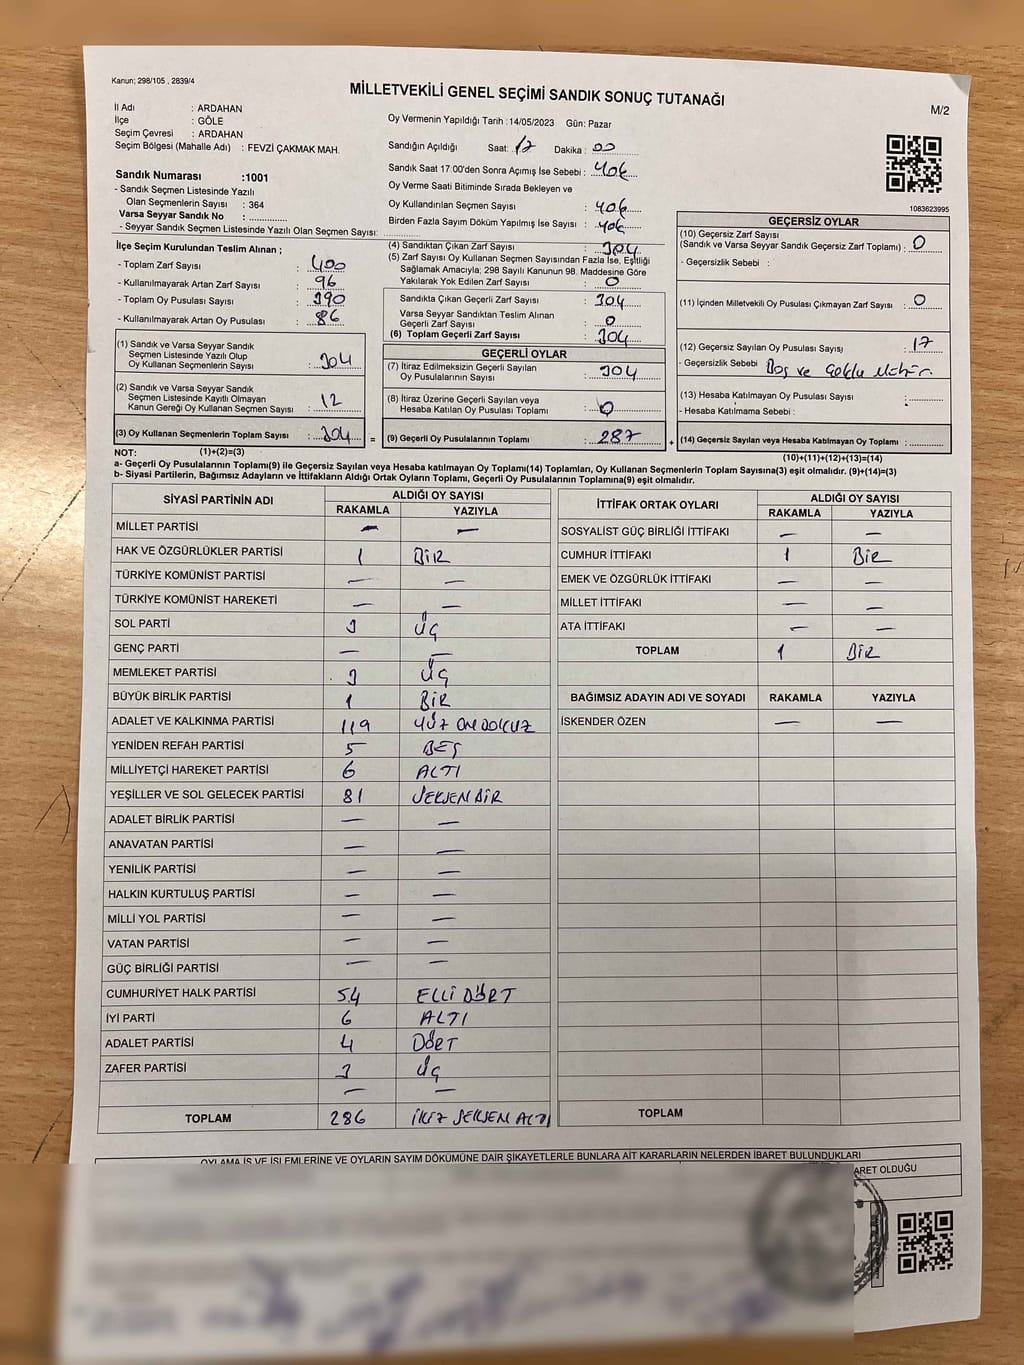 Kanun; 298/105 , 2839/4
MİLLETVEKİLİ GENEL SEÇİMİ SANDIK SONUÇ TUTANAĞI
M/2
İl Adı : ARDAHAN
İlçe : GÖLE
Seçim Çevresi : ARDAHAN
Seçim Bölgesi (Mahalle Adı) : FEVZİ ÇAKMAK MAH.
Sandık Numarası :1001
- Sandık Seçmen Listesinde Yazılı
Olan Seçmenlerin Sayısı : 364
Varsa Seyyar Sandık No :
- Seyyar Sandık Seçmen Listesinde Yazılı Olan Seçmen Sayısı:
Oy Vermenin Yapıldığı Tarih :14/05/2023 Gün: Pazar
Sandığın Açıldığı Saat: 17 Dakika : 00
Sandık Saat 17:00'den Sonra Açımış İse Sebebi :
Oy Verme Saati Bitiminde Sırada Bekleyen ve
Oy Kullandırılan Seçmen Sayısı :
Birden Fazla Sayım Döküm Yapılmış İse Sayısı :
1083623995
İlçe Seçim Kurulundan Teslim Alınan ;
- Toplam Zarf Sayısı : 400
- Kullanılmayarak Artan Zarf Sayısı : 96
- Toplam Oy Pusulası Sayısı : 390
- Kullanılmayarak Artan Oy Pusulası : 86
(1) Sandık ve Varsa Seyyar Sandık
Seçmen Listesinde Yazılı Olup
Oy Kullanan Seçmenlerin Sayısı : 304
(2) Sandık ve Varsa Seyyar Sandık
Seçmen Listesinde Kayıtlı Olmayan
Kanun Gereği Oy Kullanan Seçmen Sayısı : 12
(3) Oy Kullanan Seçmenlerin Toplam Sayısı : 304
(4) Sandıktan Çıkan Zarf Sayısı : 304
(5) Zarf Sayısı Oy Kullanan Seçmen Sayısından Fazla İse, Eşitliği
Sağlamak Amacıyla; 298 Sayılı Kanunun 98. Maddesine Göre
Yakılarak Yok Edilen Zarf Sayısı : 0
Sandıkta Çıkan Geçerli Zarf Sayısı : 304
Varsa Seyyar Sandıktan Teslim Alınan
Geçerli Zarf Sayısı : 0
(6) Toplam Geçerli Zarf Sayısı : 304
GEÇERLİ OYLAR
(7) İtiraz Edilmeksizin Geçerli Sayılan
Oy Pusulalarının Sayısı : 304
(8) İtiraz Üzerine Geçerli Sayılan veya
Hesaba Katılan Oy Pusulası Toplamı : 0
= (9) Geçerli Oy Pusulalarının Toplamı : 287
GEÇERSİZ OYLAR
(10) Geçersiz Zarf Sayısı
(Sandık ve Varsa Seyyar Sandık Geçersiz Zarf Toplamı) : 0
- Geçersizlik Sebebi :
(11) İçinden Milletvekili Oy Pusulası Çıkmayan Zarf Sayısı : 0
(12) Geçersiz Sayılan Oy Pusulası Sayısı : 17
- Geçersizlik Sebebi : Boş ve Çoklu Mühür
(13) Hesaba Katılmayan Oy Pusulası Sayısı :
- Hesaba Katılmama Sebebi :
+ (14) Geçersiz Sayılan veya Hesaba Katılmayan Oy Toplamı :
NOT: (1)+(2)=(3)
(10)+(11)+(12)+(13)=(14)
a- Geçerli Oy Pusulalarının Toplamı(9) ile Geçersiz Sayılan veya Hesaba katılmayan Oy Toplamı(14) Toplamları, Oy Kullanan Seçmenlerin Toplam Sayısına(3) eşit olmalıdır. (9)+(14)=(3)
b- Siyasi Partilerin, Bağımsız Adayların ve İttifakların Aldığı Ortak Oyların Toplamı, Geçerli Oy Pusulalarının Toplamına(9) eşit olmalıdır.
SİYASİ PARTİNİN ADI ALDIĞI OY SAYISI
RAKAMLA YAZIYLA
MİLLET PARTİSİ — —
HAK VE ÖZGÜRLÜKLER PARTİSİ 1 BİR
TÜRKİYE KOMÜNİST PARTİSİ — —
TÜRKİYE KOMÜNİST HAREKETİ — —
SOL PARTİ 3 ÜÇ
GENÇ PARTİ — —
MEMLEKET PARTİSİ 3 ÜÇ
BÜYÜK BİRLİK PARTİSİ 1 BİR
ADALET VE KALKINMA PARTİSİ 119 YÜZ ONDOKUZ
YENİDEN REFAH PARTİSİ 5 BEŞ
MİLLİYETÇİ HAREKET PARTİSİ 6 ALTI
YEŞİLLER VE SOL GELECEK PARTİSİ 81 SEKSENBİR
ADALET BİRLİK PARTİSİ — —
ANAVATAN PARTİSİ — —
YENİLİK PARTİSİ — —
HALKIN KURTULUŞ PARTİSİ — —
MİLLİ YOL PARTİSİ — —
VATAN PARTİSİ — —
GÜÇ BİRLİĞİ PARTİSİ — —
CUMHURİYET HALK PARTİSİ 54 ELLİ DÖRT
İYİ PARTİ 6 ALTI
ADALET PARTİSİ 4 DÖRT
ZAFER PARTİSİ 3 ÜÇ
— —
TOPLAM 286 İKİYZ SEKSEN ALTI
İTTİFAK ORTAK OYLARI ALDIĞI OY SAYISI
RAKAMLA YAZIYLA
SOSYALİST GÜÇ BİRLİĞİ İTTİFAKI — —
CUMHUR İTTİFAKI 1 BİR
EMEK VE ÖZGÜRLÜK İTTİFAKI — —
MİLLET İTTİFAKI — —
ATA İTTİFAKI — —
TOPLAM 1 BİR
BAĞIMSIZ ADAYIN ADI VE SOYADI RAKAMLA YAZIYLA
İSKENDER ÖZEN — —
TOPLAM
OYLAMA İŞ VE İŞLEMLERİNE VE OYLARIN SAYIM DÖKÜMÜNE DAİR ŞİKAYETLERLE BUNLARA AİT KARARLARIN NELERDEN İBARET BULUNDUKLARI
OLDUĞU